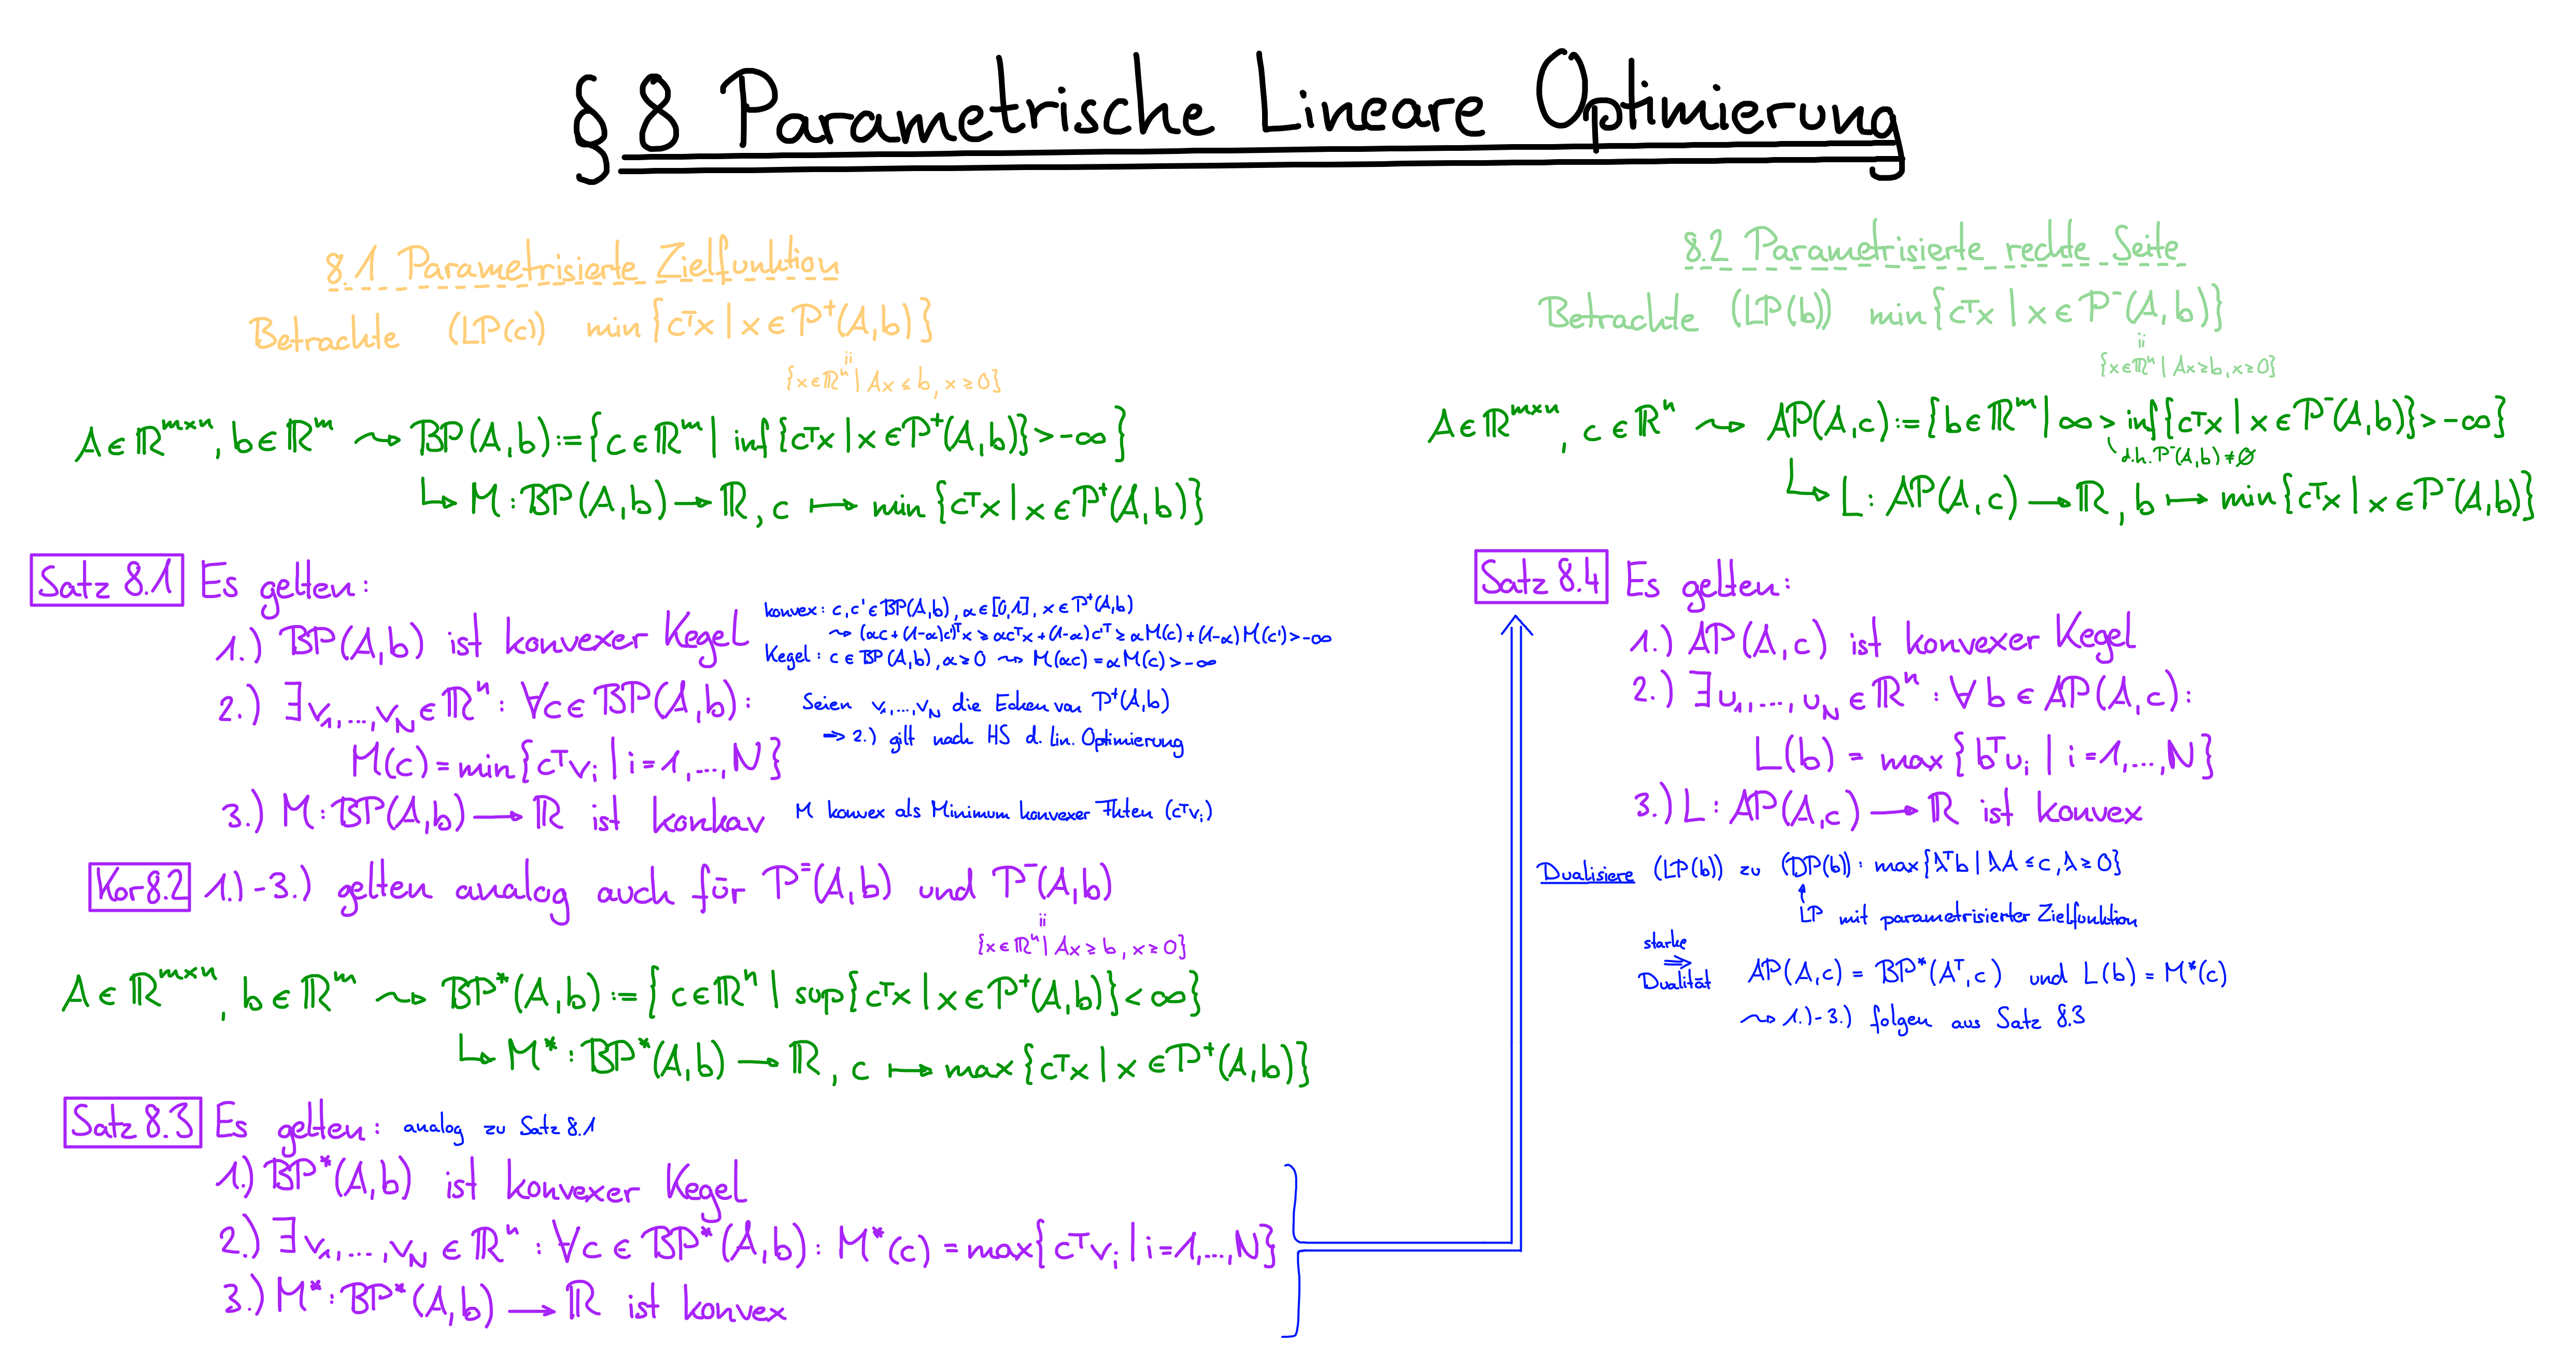 § 8 Parametrische Lineare Optimierung
8.1 Parametrisierte Zielfunktion
Betrachte (LP(c)) min{cᵀx | x ∈ P⁺(A,b)}
ii
{x∈ℝⁿ | Ax ≤ b, x ≥ 0}
A∈ℝᵐˣⁿ, b∈ℝᵐ ⤳ BP(A,b) := {c∈ℝᵐ | inf{cᵀx | x∈P⁺(A,b)} > -∞}
↳ M: BP(A,b) → ℝ, c ↦ min{cᵀx | x∈P⁺(A,b)}
Satz 8.1 Es gelten:
1.) BP(A,b) ist konvexer Kegel
konvex: c,c'∈BP(A,b), α∈[0,1], x∈P⁺(A,b)
⤳ (αc+(1-α)c')ᵀx ≥ αcᵀx+(1-α)c'ᵀ ≥ αM(c)+(1-α)M(c') > -∞
Kegel: c∈BP(A,b), α≥0 ⤳ M(αc) = αM(c) > -∞
2.) ∃v₁,...,v_N∈ℝⁿ: ∀c∈BP(A,b):
M(c) = min{cᵀvᵢ | i=1,...,N}
Seien v₁,...,v_N die Ecken von P⁺(A,b)
⇒ 2.) gilt nach HS d. lin. Optimierung
3.) M: BP(A,b) → ℝ ist konkav
M konvex als Minimum konvexer Fkten (cᵀvᵢ)
Kor 8.2 1.)-3.) gelten analog auch für P⁼(A,b) und P⁻(A,b)
ii
{x∈ℝⁿ | Ax ≥ b, x ≥ 0}
A∈ℝᵐˣⁿ, b∈ℝᵐ ⤳ BP*(A,b) := {c∈ℝⁿ | sup{cᵀx | x∈P⁺(A,b)} < ∞}
↳ M*: BP*(A,b) → ℝ, c ↦ max{cᵀx | x∈P⁺(A,b)}
Satz 8.3 Es gelten: analog zu Satz 8.1
1.) BP*(A,b) ist konvexer Kegel
2.) ∃v₁,...,v_N∈ℝⁿ: ∀c∈BP*(A,b): M*(c) = max{cᵀvᵢ | i=1,...,N}
3.) M*: BP*(A,b) → ℝ ist konvex
8.2 Parametrisierte rechte Seite
Betrachte (LP(b)) min{cᵀx | x∈P⁻(A,b)}
ii
{x∈ℝⁿ | Ax≥b, x≥0}
A∈ℝᵐˣⁿ, c∈ℝⁿ ⤳ AP(A,c) := {b∈ℝᵐ | ∞ > inf{cᵀx | x∈P⁻(A,b)} > -∞}
d.h. P⁻(A,b) ≠ ∅
↳ L: AP(A,c) → ℝ, b ↦ min{cᵀx | x∈P⁻(A,b)}
Satz 8.4 Es gelten:
1.) AP(A,c) ist konvexer Kegel
2.) ∃u₁,...,u_N∈ℝⁿ: ∀b∈AP(A,c):
L(b) = max{bᵀuᵢ | i=1,...,N}
3.) L: AP(A,c) → ℝ ist konvex
Dualisiere (LP(b)) zu (DP(b)): max{λᵀb | λA ≤ c, λ ≥ 0}
↑
LP mit parametrisierter Zielfunktion
starke
⇒
Dualität AP(A,c) = BP*(Aᵀ,c) und L(b) = M*(c)
⤳ 1.)-3.) folgen aus Satz 8.3